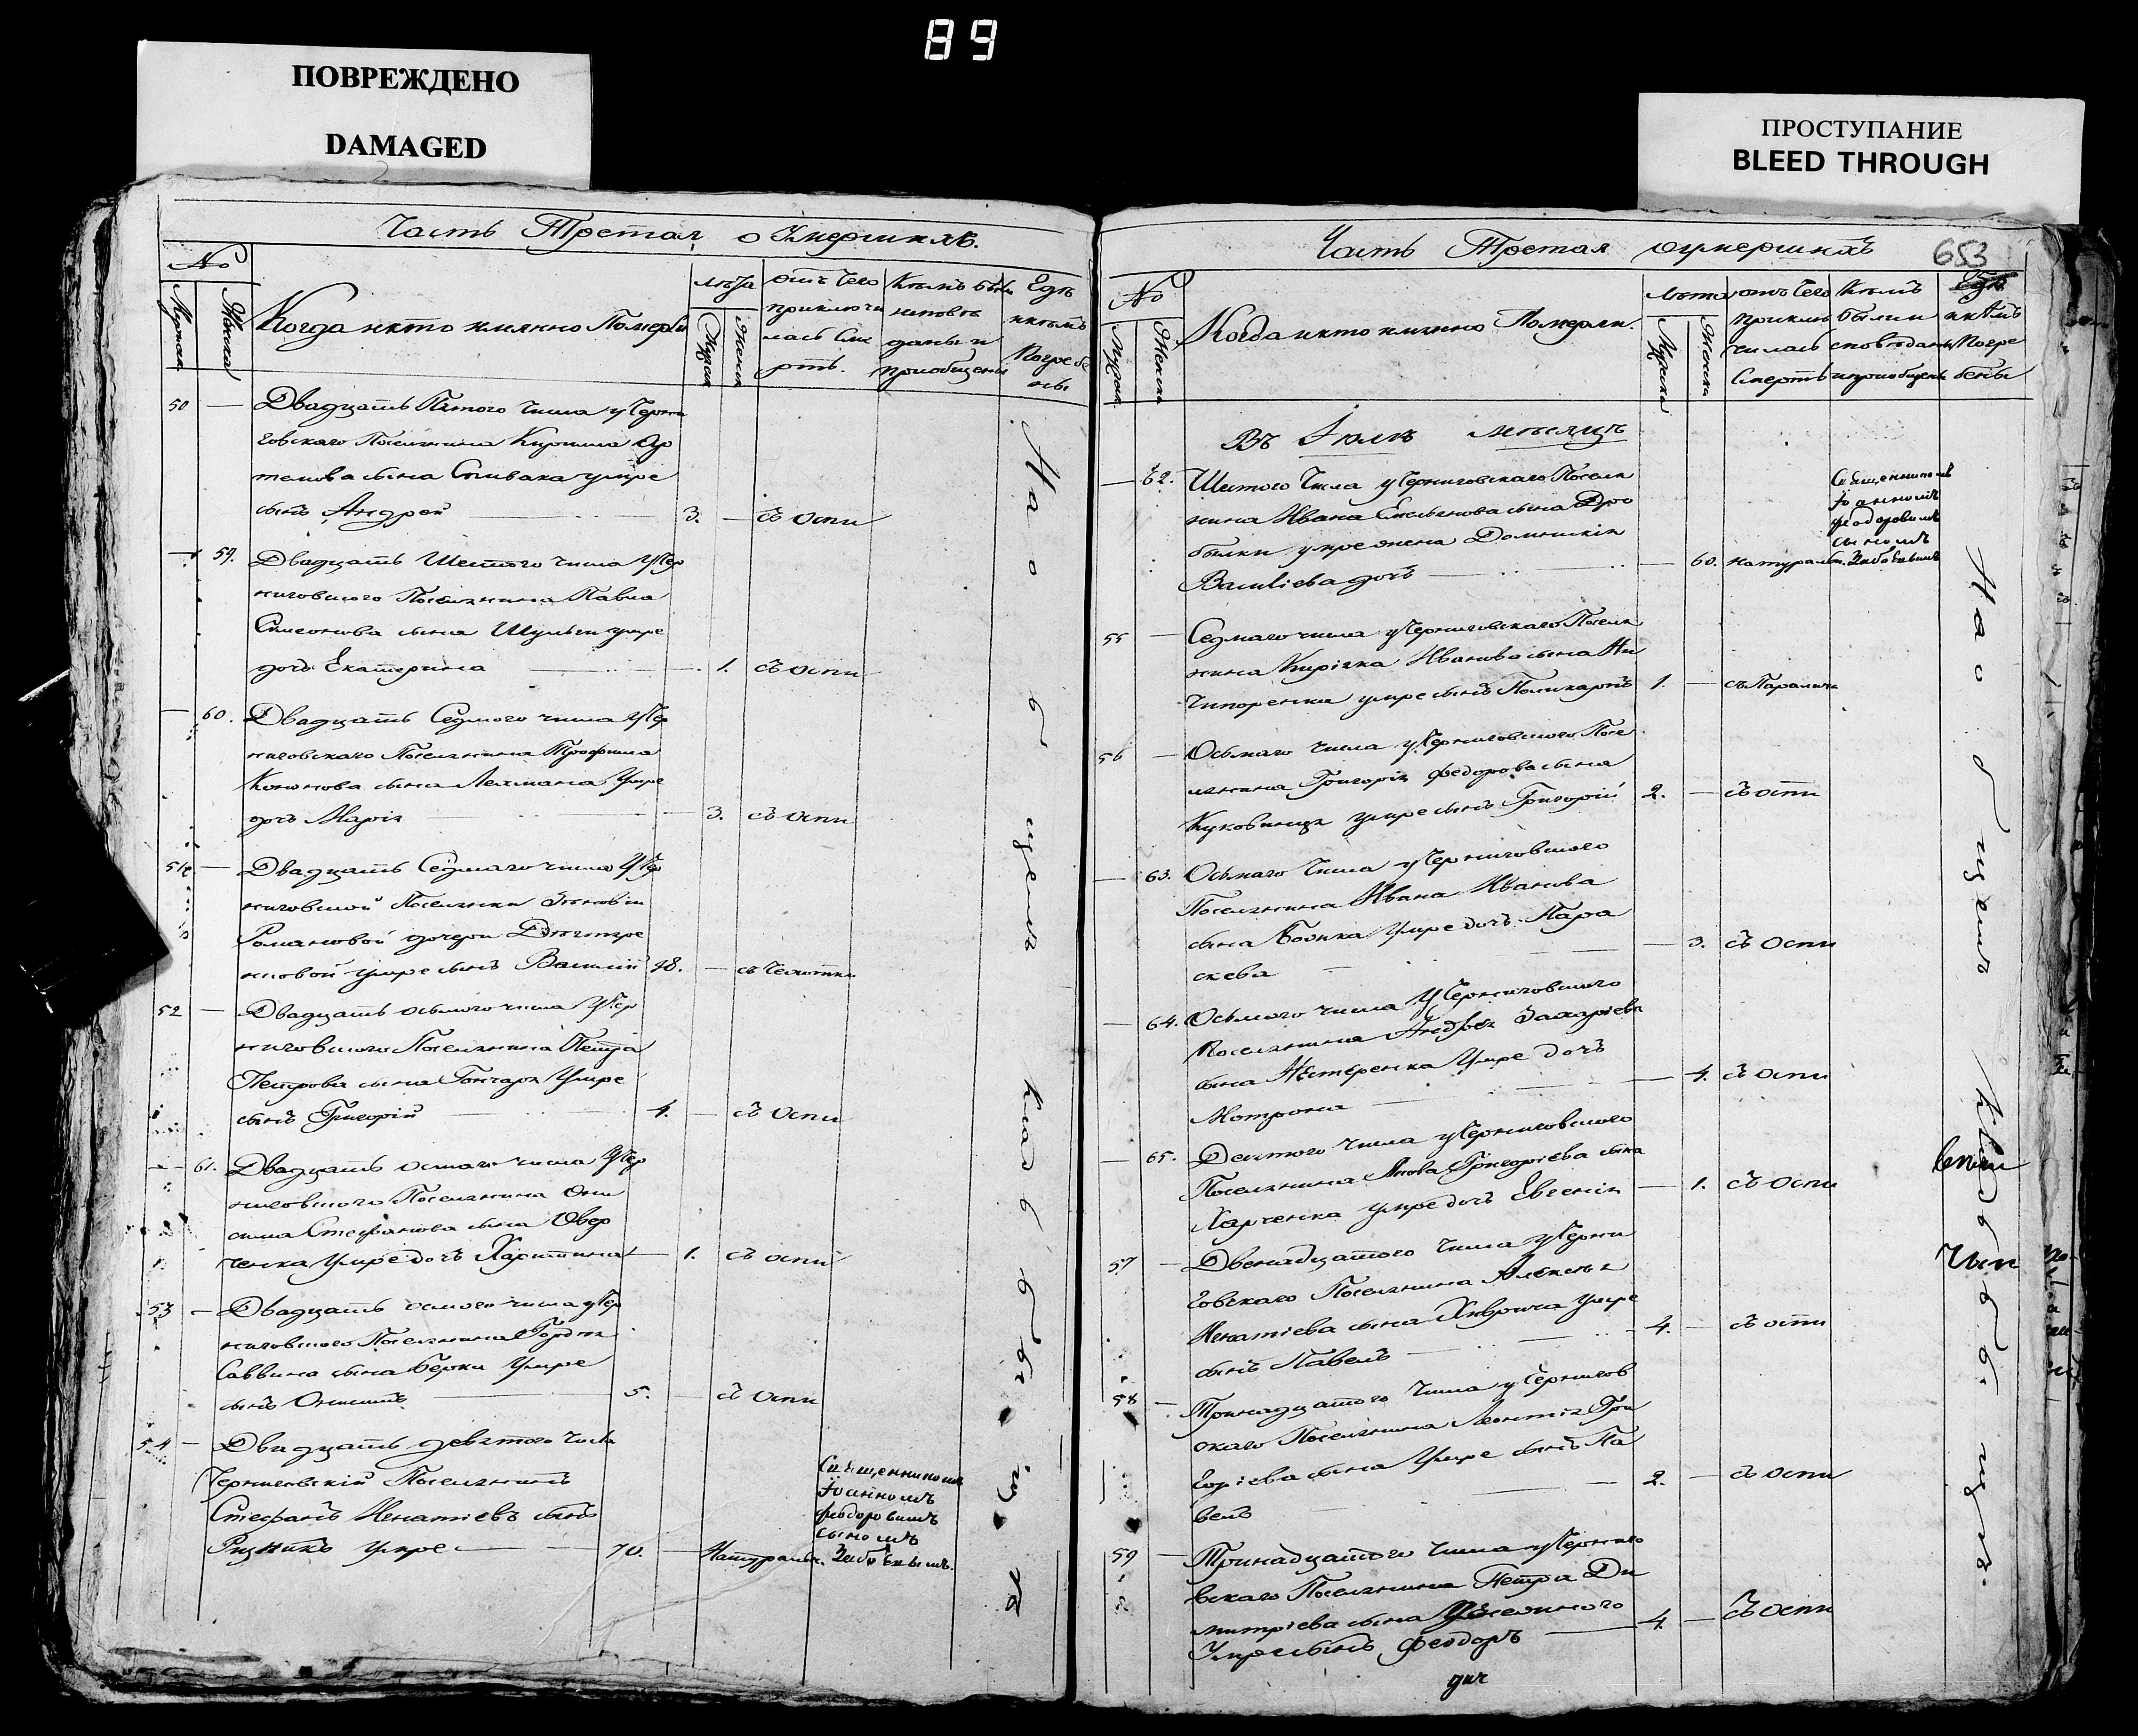 89
ПОВРЕЖДЕНО
DAMAGED
ПРОСТУПАНИЕ
BLEED THROUGH
Часть Третая о Умершихъ.
№
Мужска
Женска
Когда и кто имянно Померъ
лѣта
Мужск
Женск
отъ чего
приключи
лась Сме
рть.
Кѣмъ были
исповѣ
даны и
приобщены
Где
и кѣмъ
Погребе
ны
50 — Двадцать Пятого числа у Черни
говскаго Поселянина Кирилла Ар
темова сына Спивака умре
сынъ Андрей 3. — съ оспи
— 59. Двадцать Шестого числа у Чер
ниговского Поселянина Павла
Симеонова сына Шульги умре
дочь Екатерина 1. съ оспи
— 60. Двадцать Седмого числа у Чер
ниговскаго Поселянина Трофима
Кононова сына Лахмана Умре
дочь Марія — 3. съ оспи
51 — Двадцать Седмаго числа У Чер
ниговской Поселянки Зѣновіи
Романовой дочери
умре сынъ Василій 18. —
52 — Двадцать осьмого числа У Чер
ниговского Поселянина Петра
Петрова сына Гончара Умре
сынъ Григорій 4. — съ Оспи
— 61. Двадцать осмаго числа У Чер
ниговского Поселянина Они
сима Стефанова сына Овер
ченка Умре дочь Харитина — 1. съ оспи
53 — Двадцать осмого числа у Чер
ниговского Поселянина Гордѣя
Саввина сына Берки Умре
сынъ Онисимъ 5. — съ Оспи
54 — Двадцать девятого числа
Черниговскій Поселянинъ
Стефанъ Игнатіевъ сынъ
Рѣзникъ умре — 70. — Натуральн.
Священникомъ
Іоанномъ
Феодоровимъ
сыномъ
На общемъ кладбѣщѣ
Часть Третая о умершихъ
653
№
Мужск
Женск
Когда и кто имянно Померли.
Лѣта
Мужска
Женска
отъ чего
приклю
чилась
Смерть
Кѣмъ
были и
сповѣданы
и приобщены
Где
и кѣмъ
Погре
бены
Въ Іюлѣ мѣсяцѣ
— 62. Шестого Числа у Черниговскаго Поселя
нина Ивана Емельянова сына Дро
былки умре жена Домникія
Василіева дочь — 60. натуральн.
Священникомъ
Іоанномъ
Феодоровимъ
сыномъ
55 — Седмаго числа у Черниговскаго Поселя
нина Киріяка Иванова сына Ни
чипоренка умре сынъ Поликарпъ 1. — съ Паралича
56 — Осьмаго числа у Черниговского Посе
лянина Григорія Федорова сына
Куковицы умре сынъ Григорій 2. — съ оспи
— 63. Осьмаго Числа у Черниговского
Поселянина Ивана Иванова
сына Бойка Умре дочь Пара
скева — 3. съ Оспи
— 64. Осьмого числа У Черниговского
Поселянина Андрея Захаріева
сына Нестеренка Умре дочь
Мотрона — 4. съ Оспи
— 65. Девятого Числа у Черниговского
Поселянина Якова Григоріева сына
Харченка умре дочь Евгенія — 1. съ Оспи
57 — Двенадцатого числа у Черни
говскаго Поселянина Алексѣя
Игнатіева сына Умре
сынъ Павелъ 4. — съ оспи
58 — Тринадцатого Числа у Чернигов
скаго Поселянина Леонтія Гри
горіева сына Умре сынъ Па
велъ 2. — съ оспи
59 — Тринадцатого Числа у Черниго
вскаго Поселянина Петра Ди
митріева сына
Умре сынъ Феодоръ 4. — съ Оспи
На общемъ кладбѣщѣ.